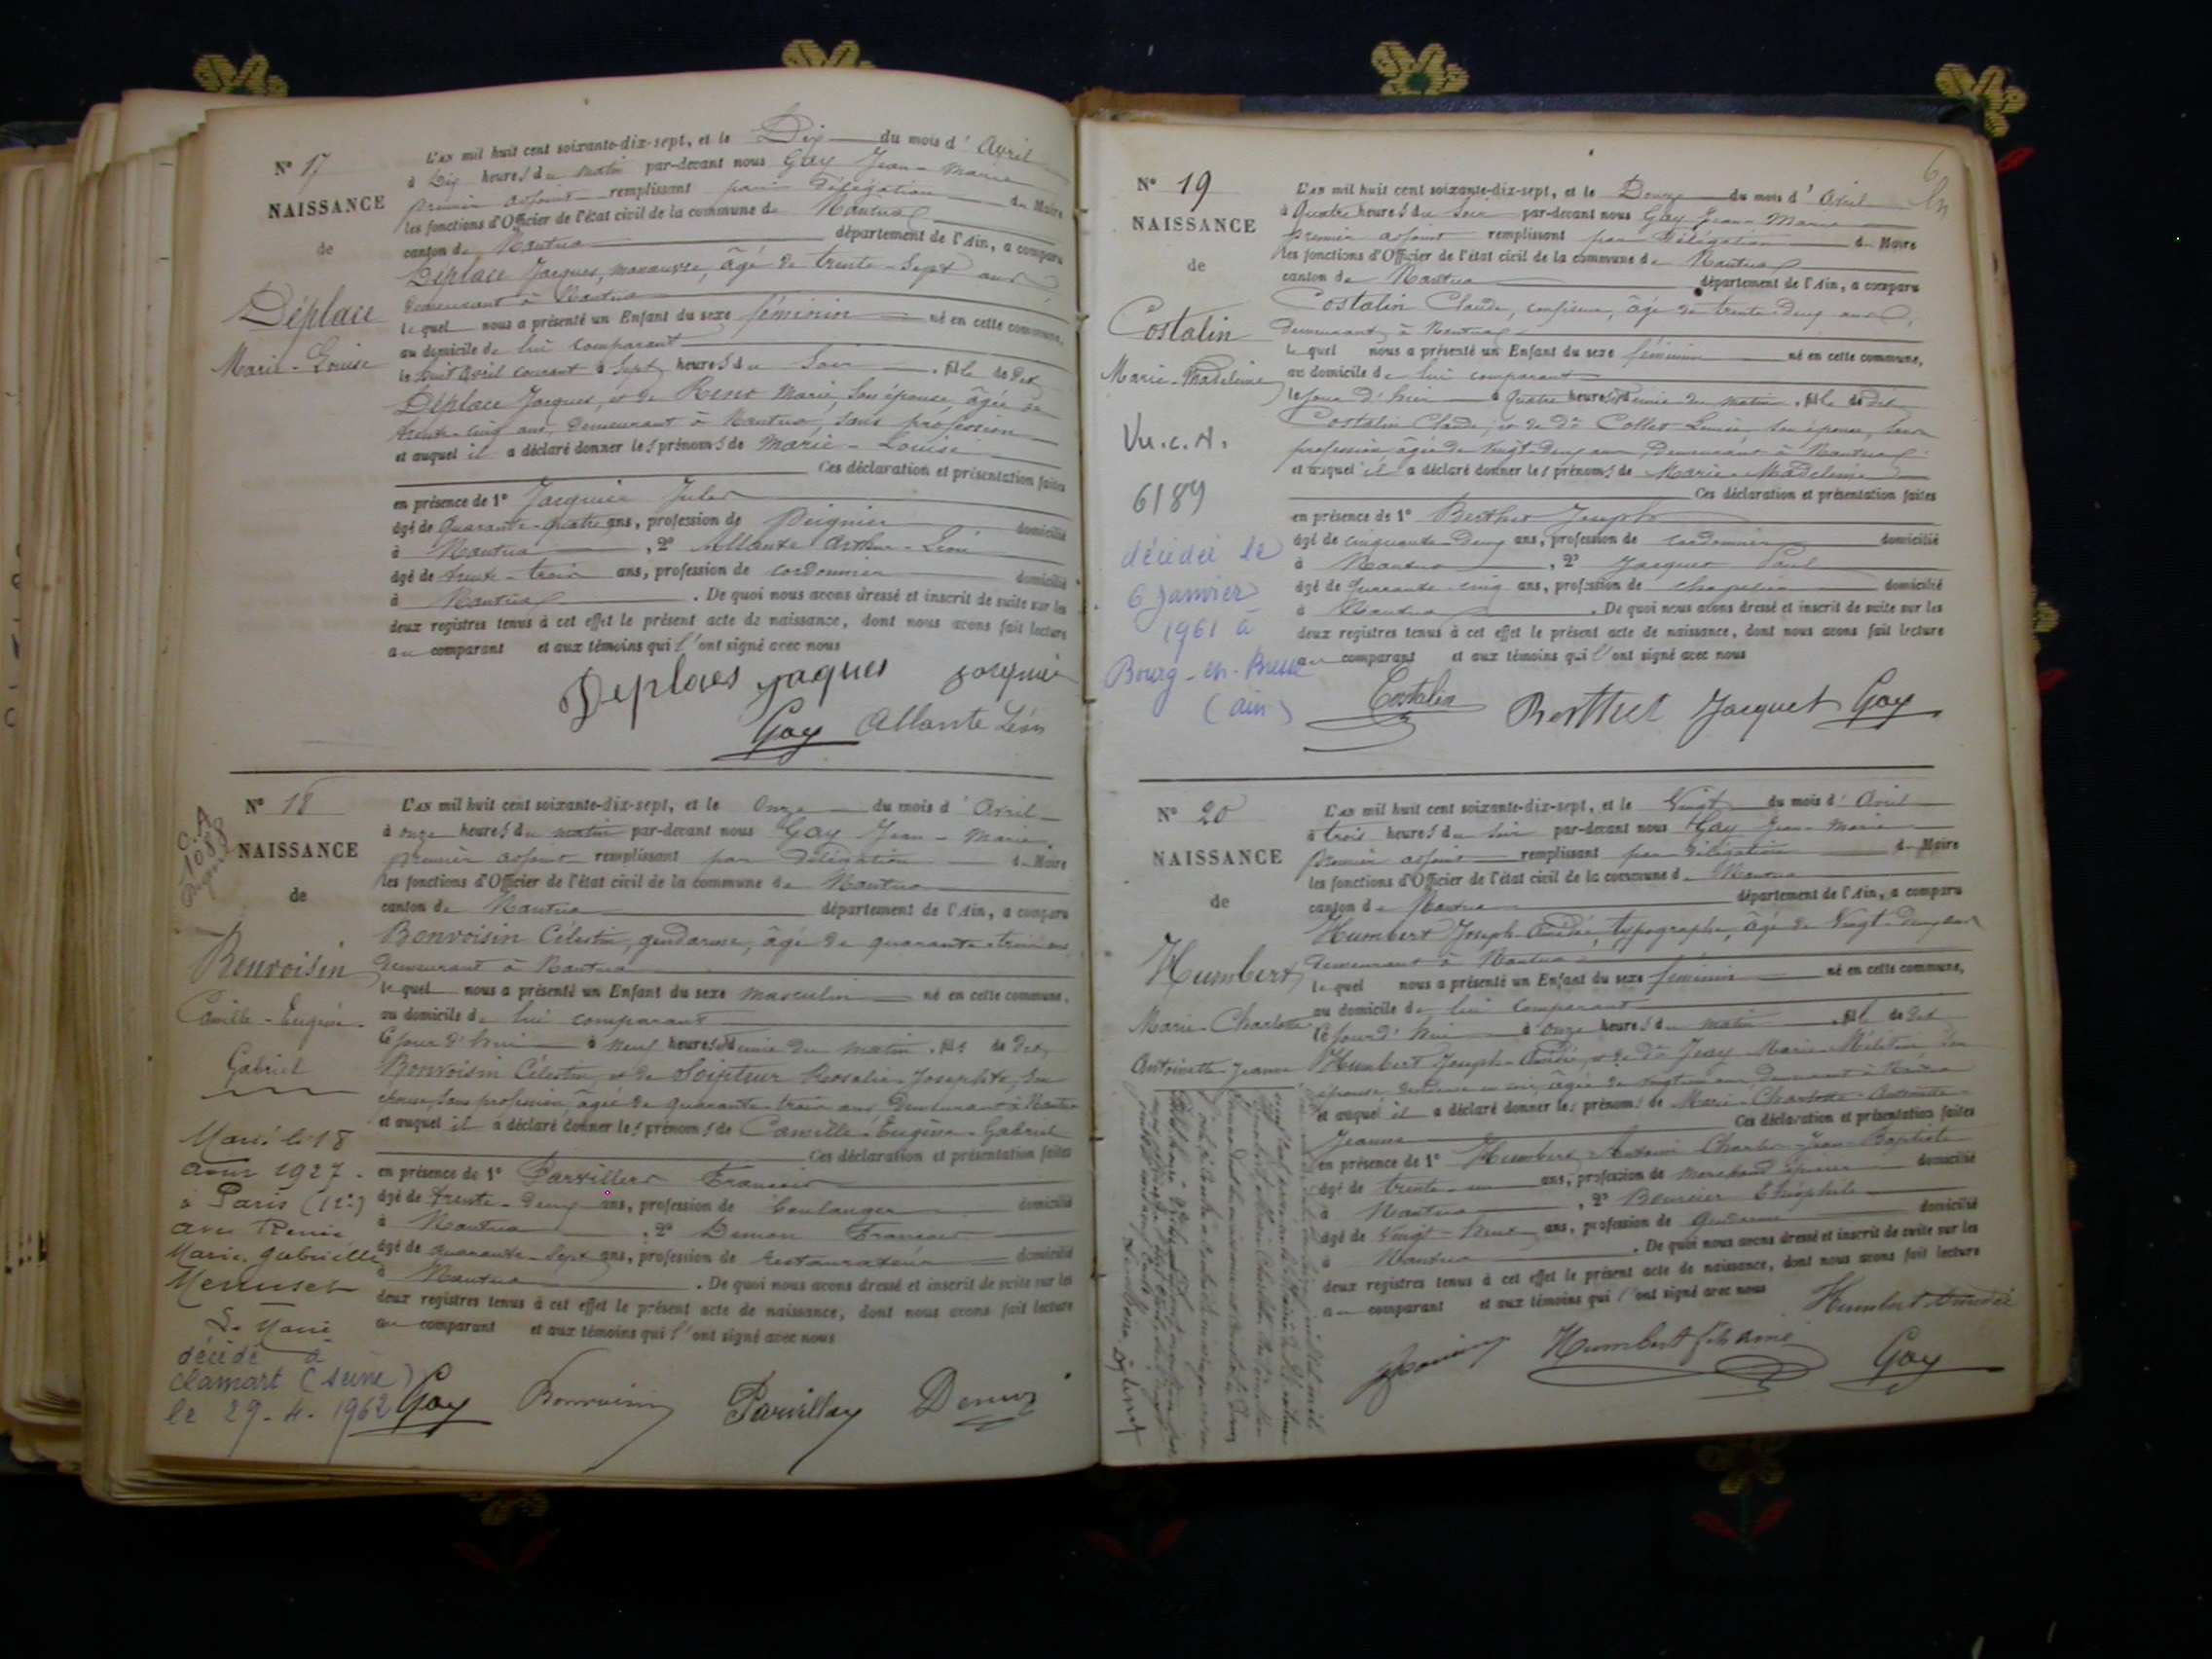 N° 17
NAISSANCE
de
Déplace
Marie-Louise
L'an mil huit cent soixante-dix-sept, et le Dix du mois d'Avril
à Dix heures du matin par-devant nous Gay Jean-Marie
premier adjoint remplissant par délégation du Maire
les fonctions d'Officier de l'état civil de la commune de Nantua
canton de Nantua département de l'Ain, a comparu
Déplace Jacques, manœuvre, âgé de trente-sept ans
demeurant à Nantua
lequel nous a présenté un Enfant du sexe féminin né en cette commune,
au domicile de lui comparant
le huit avril courant à sept heures du soir, fille de dit
Déplace Jacques, et de Marie, son épouse, âgée de
trente-cinq ans, demeurant à Nantua, sans profession
et auquel il a déclaré donner les prénoms de Marie-Louise
Ces déclaration et présentation faites
en présence de 1° Jacquier Jules
âgé de quarante-quatre ans, profession de Peignier domicilié
à Nantua, 2° Allante Arthur-Léon
âgé de trente-trois ans, profession de cordonnier domicilié
à Nantua. De quoi nous avons dressé et inscrit de suite sur les
deux registres tenus à cet effet le présent acte de naissance, dont nous avons fait lecture
au comparant et aux témoins qui l'ont signé avec nous
Deplaces jaques Jacquier
Gay Allante Léon
N° 18
NAISSANCE
de
Bonvoisin
Camille-Eugène-
Gabriel
Marié le 18
1927.
à Paris (12e)
avec Renée
Marie, Gabrielle
Menuset
décédé à
Clamart (Seine)
le 29-4-1962
L'an mil huit cent soixante-dix-sept, et le Onze du mois d'Avril
à onze heures du matin par-devant nous Gay Jean-Marie
premier adjoint remplissant par délégation du Maire
les fonctions d'Officier de l'état civil de la commune de Nantua
canton de Nantua département de l'Ain, a comparu
Bonvoisin Célestin, gendarme, âgé de quarante-trois ans
demeurant à Nantua
lequel nous a présenté un Enfant du sexe masculin né en cette commune,
au domicile de lui comparant
le jour d'hui à neuf heures et demie du matin, fils de dit
Bonvoisin Célestin, et de Rosalie-Josephte, son
épouse, sans profession, âgée de quarante-trois ans demeurant à Nantua
et auquel il a déclaré donner les prénoms de Camille-Eugène-Gabriel
Ces déclaration et présentation faites
en présence de 1° Parvillers François
âgé de trente-deux ans, profession de boulanger domicilié
à Nantua, 2° François
âgé de quarante-sept ans, profession de restaurateur domicilié
à Nantua. De quoi nous avons dressé et inscrit de suite sur les
deux registres tenus à cet effet le présent acte de naissance, dont nous avons fait lecture
au comparant et aux témoins qui l'ont signé avec nous
Gay Bonvoisin
N° 19
NAISSANCE
de
Costalin
Marie-Madeleine
Vu.c.N.
6189
décédée le
6 Janvier
1961 à
Bourg-en-Bresse
(ain)
L'an mil huit cent soixante-dix-sept, et le Douze du mois d'Avril
à Quatre heures du Soir par-devant nous Gay Jean-Marie
premier adjoint remplissant par délégation du Maire
les fonctions d'Officier de l'état civil de la commune de Nantua
canton de Nantua département de l'Ain, a comparu
Costalin Claude, confiseur, âgé de trente-deux ans,
demeurant à Nantua
lequel nous a présenté un Enfant du sexe féminin né en cette commune,
au domicile de lui comparant
le jour d'hier à quatre heures et demie du matin, fille de dit
Costalin Claude, et de de Collet Louise, son épouse, sans
profession âgée de vingt-deux ans, demeurant à Nantua
et auquel il a déclaré donner les prénoms de Marie-Madeleine
Ces déclaration et présentation faites
en présence de 1° Berthet Joseph
âgé de cinquante-deux ans, profession de cordonnier domicilié
à Nantua, 2° Jacquet Paul
âgé de quarante-cinq ans, profession de chapelier domicilié
à Nantua. De quoi nous avons dressé et inscrit de suite sur les
deux registres tenus à cet effet le présent acte de naissance, dont nous avons fait lecture
au comparant et aux témoins qui l'ont signé avec nous
Costalin Berthet Jacquet Gay
N° 20
NAISSANCE
de
Humbert
Marie-Charlotte
Antoinette-Jeanne
L'an mil huit cent soixante-dix-sept, et le Vingt du mois d'Avril
à trois heures du soir par-devant nous Gay Jean-Marie
premier adjoint remplissant par délégation du Maire
les fonctions d'Officier de l'état civil de la commune de Nantua
canton de Nantua département de l'Ain, a comparu
Humbert Joseph-Amédé, typographe, âgé de Vingt-deux ans
demeurant à Nantua
lequel nous a présenté un Enfant du sexe féminin né en cette commune,
au domicile de lui comparant
le jour d'hui à onze heures du matin, fille de dit
Humbert Joseph-Amédé, et de de Jeay Marie
et auquel il a déclaré donner les prénoms de Marie-Charlotte-Antoinette-
Jeanne Ces déclaration et présentation faites
en présence de 1° Humbert Antoine Charles-Jean-Baptiste
âgé de trente-un ans, profession de marchand épicier domicilié
à Nantua, 2° Théophile
âgé de Vingt-neuf ans, profession de Gendarme domicilié
à Nantua. De quoi nous avons dressé et inscrit de suite sur les
deux registres tenus à cet effet le présent acte de naissance, dont nous avons fait lecture
au comparant et aux témoins qui l'ont signé avec nous
Humbert Amédé
Humbert fils ainé Gay